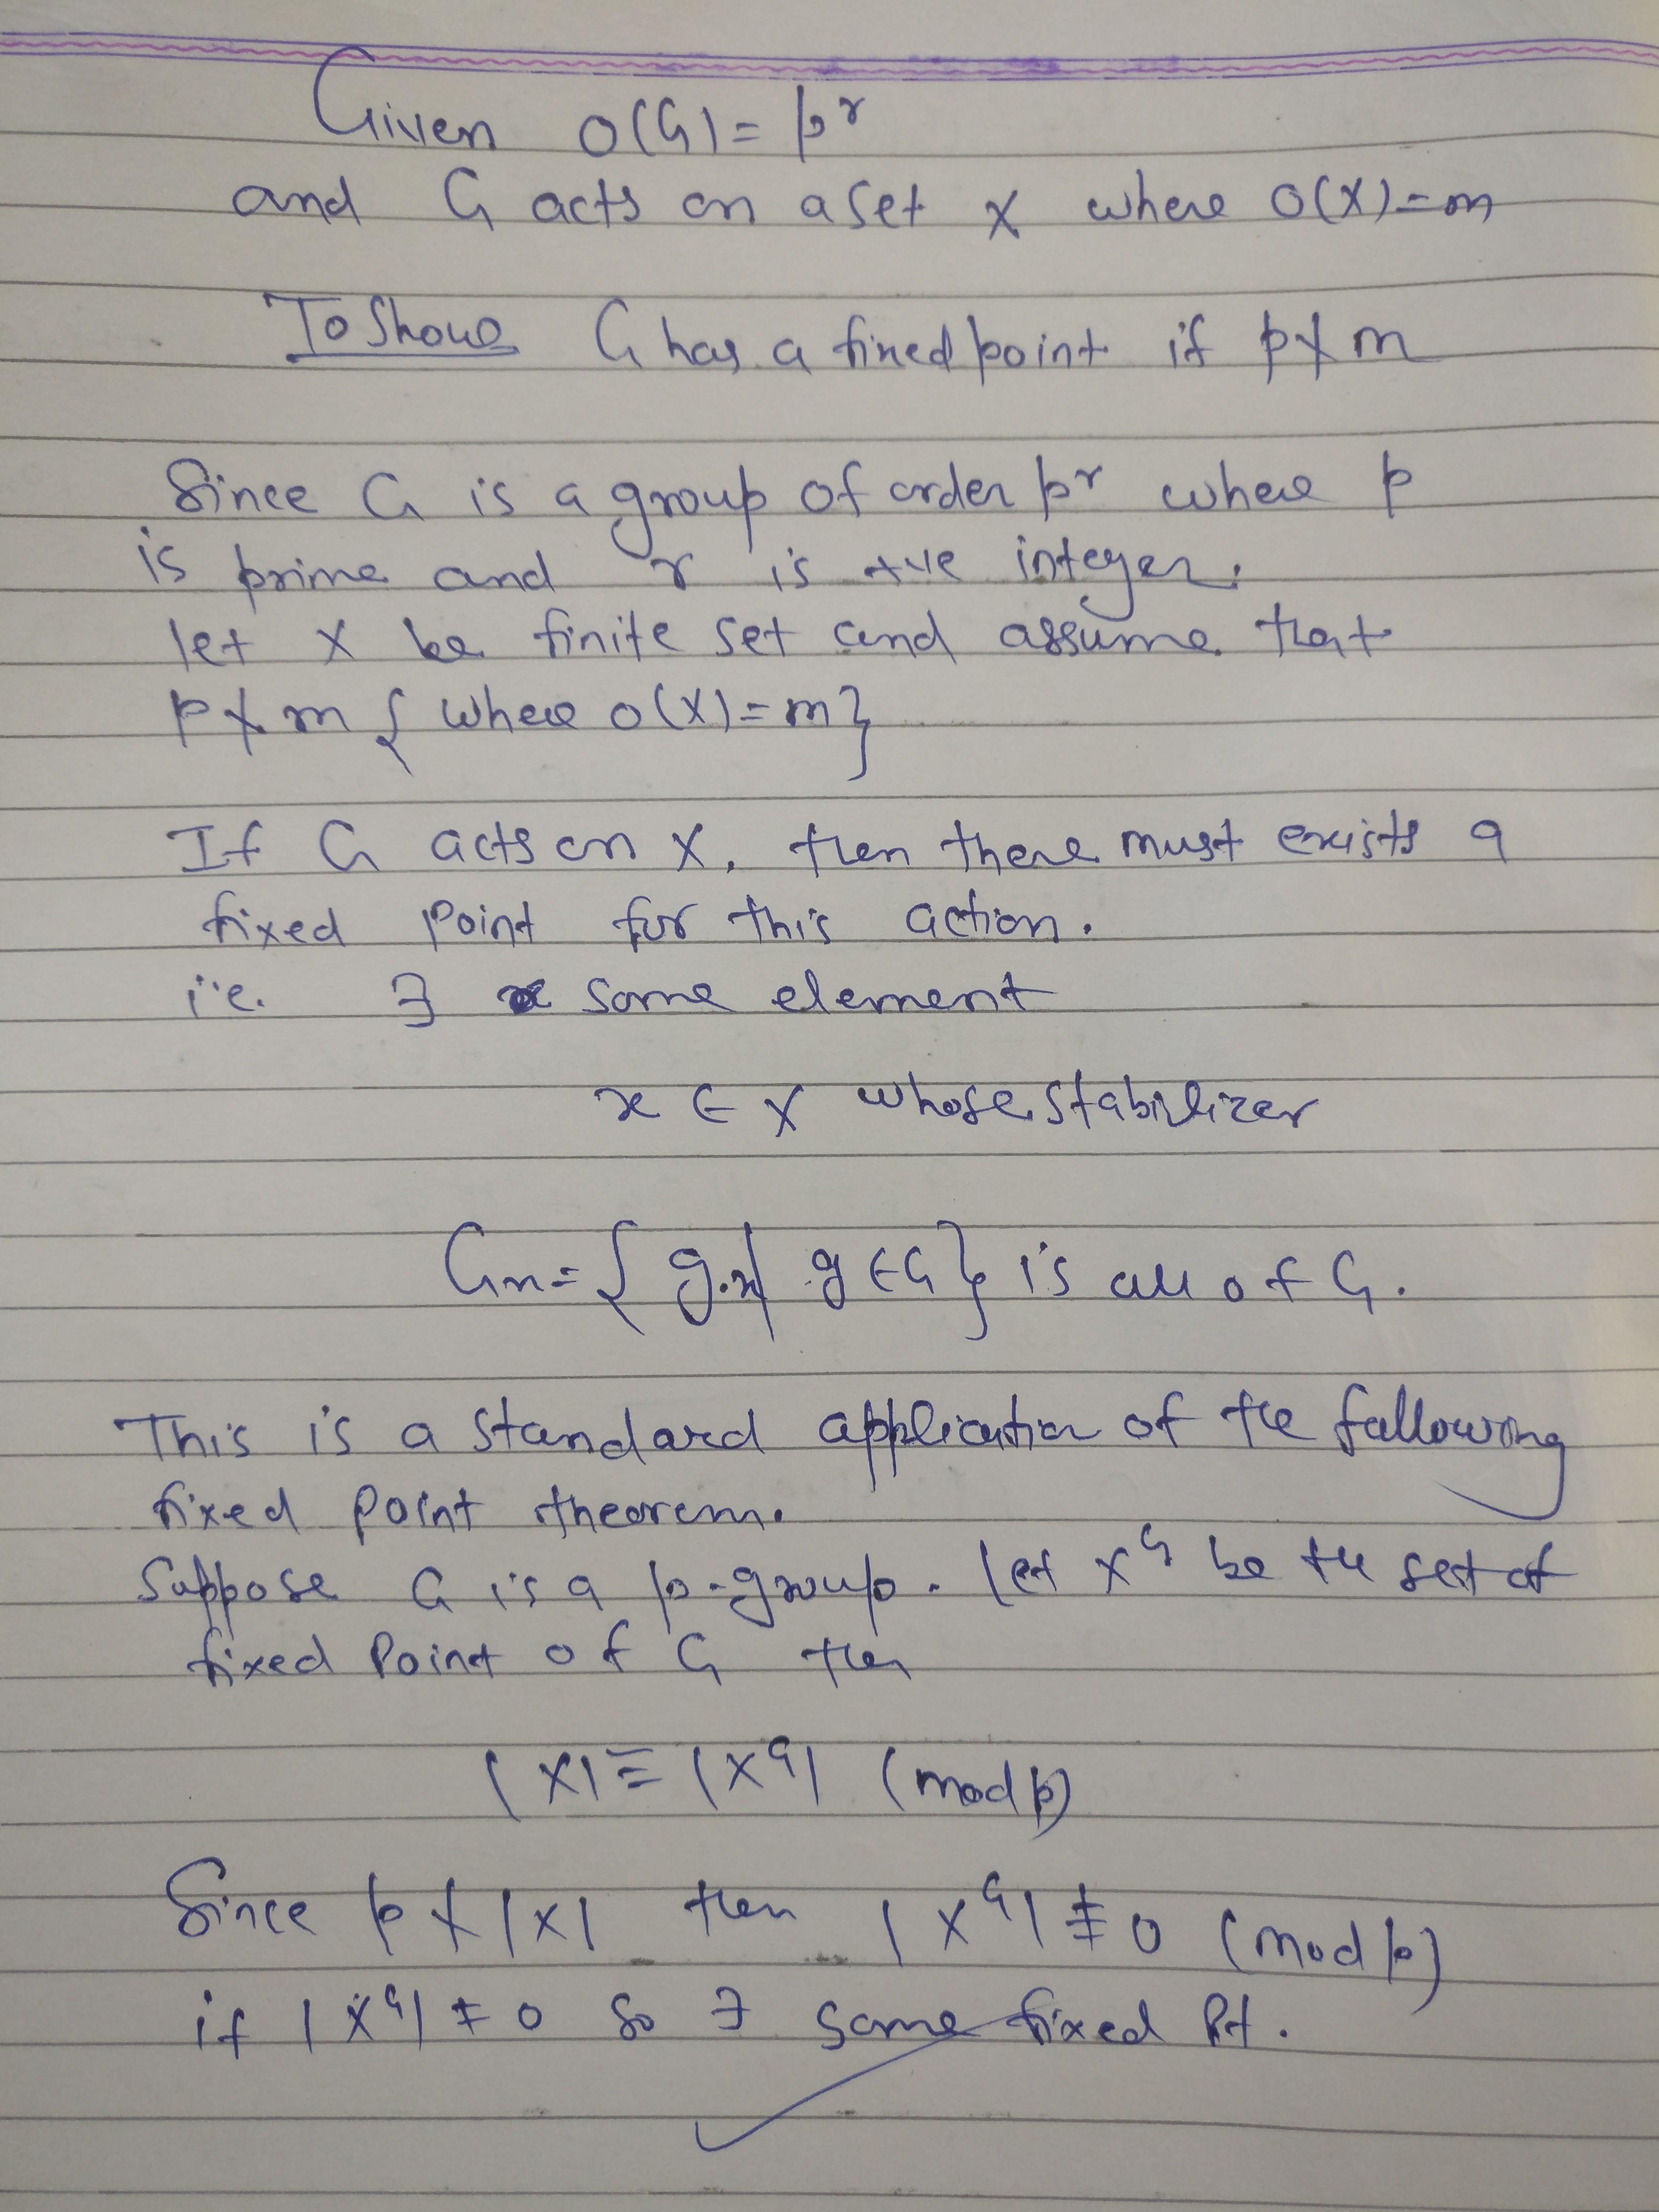 Given O(G) = p^r
and G acts on a set X where O(X) = m
To Show G has a fixed point if p ∤ m
Since G is a group of order p^r where p
is prime and r is +ve integer.
let X be finite set and assume that
p ∤ m { where o(X) = m }
If G acts on X, then there must exists a
fixed point for this action.
i.e. ∃ some element
x ∈ X whose stabilizer
Gx = { g.x | g ∈ G } is all of G.
This is a standard application of the following
fixed point theorem.
Suppose G is a p-group. let X^G be the set of
fixed point of G then
|X| ≡ |X^G| (mod p)
Since p ∤ |X| then |X^G| ≢ 0 (mod p)
if |X^G| ≠ 0 So ∃ some fixed Pt.